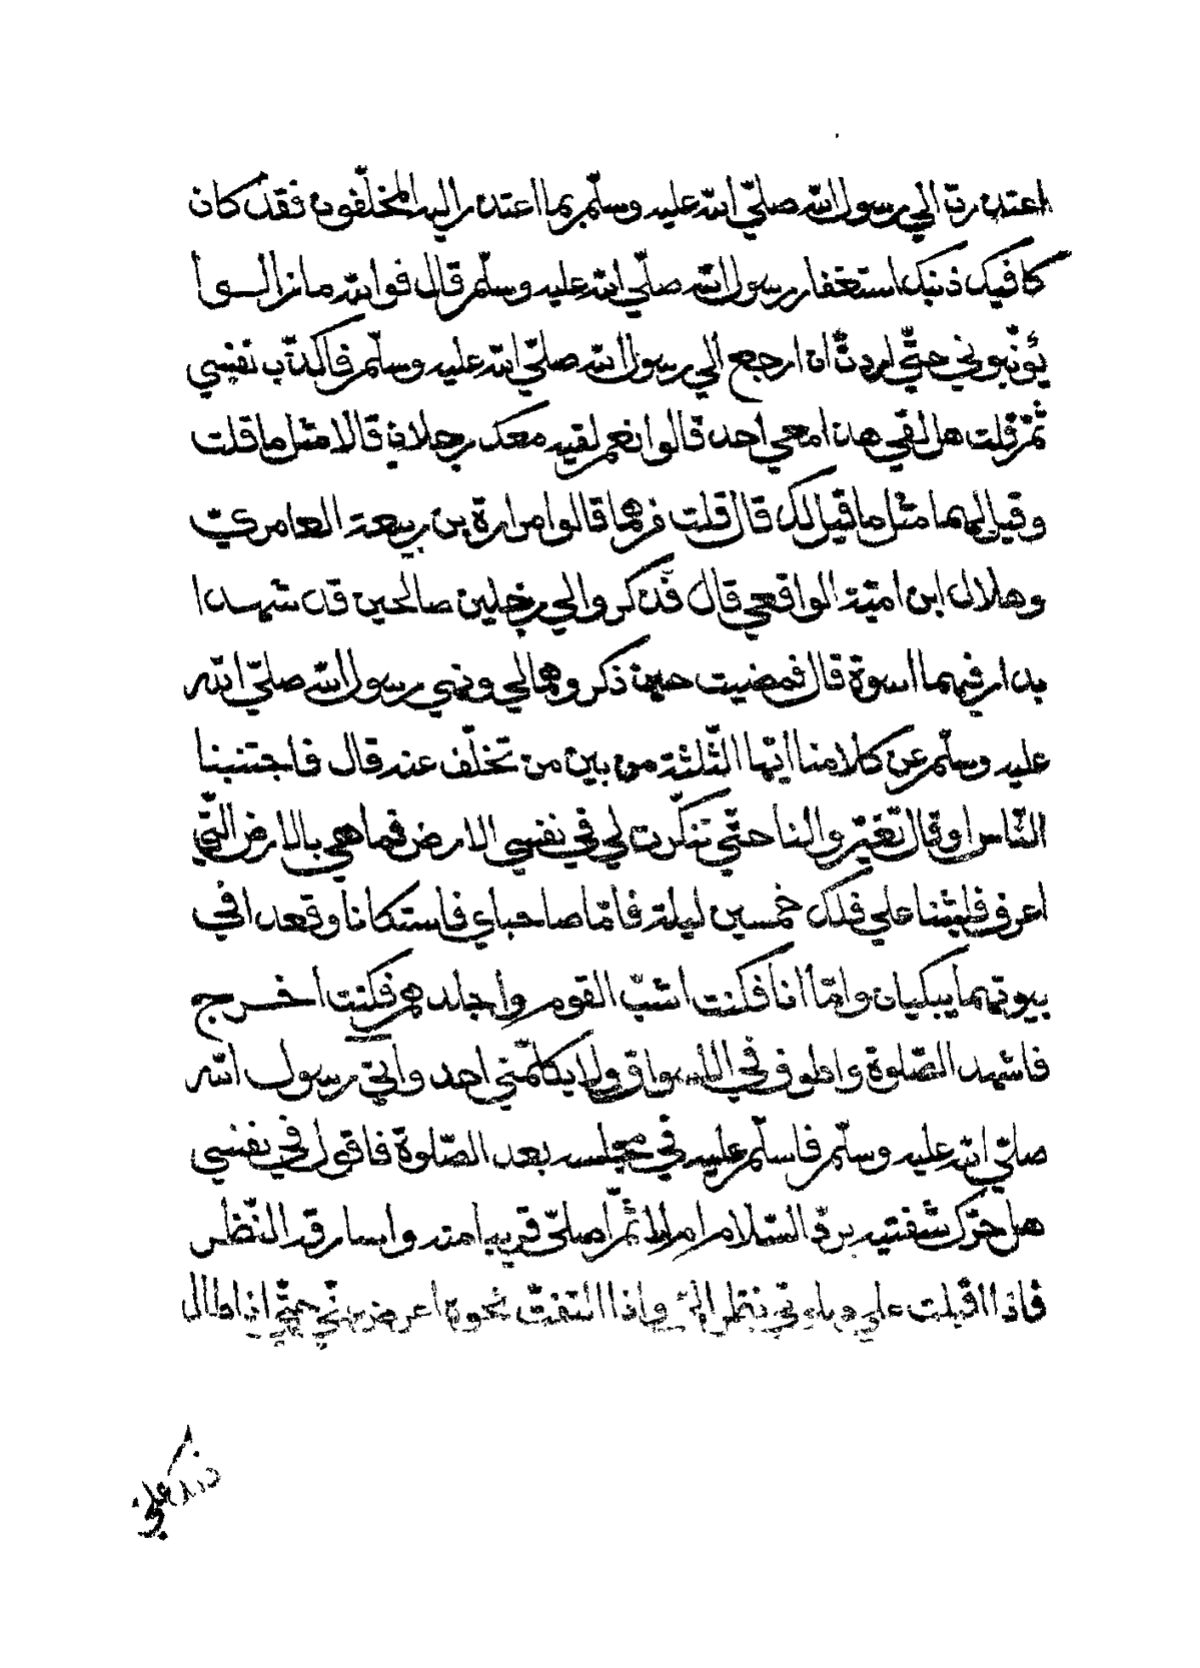 اعتذرت الي رسول الله صلّي الله عليه وسلّم بما اعتذر اليه المخلّفون فقد كان
كافيك ذنبك استغفار رسول الله صلّي الله عليه وسلّم قال فوالله ما زالوا
يؤنّبوني حتّي اردتّ ان ارجع الي رسول الله صلّي الله عليه وسلّم فاكذّب نفسي
ثمّ قلت هل لقي هذا معي احد قالوا نعم لقيه معك رجلان قالا مثل ما قلت
وقيل لهما مثل ما قيل لك قال قلت من هما قالوا مرارة بن ربيعة العامري
وهلال ابن اميّة الواقفي قال فذكروا لي رجلين صالحين قد شهدا
بدا رفيهما اسوة قال فمضيت حين ذكروهما لي ونهي رسول الله صلّي الله
عليه وسلّم عن كلامنا ايّها الثّلثة من بين من تخلّف عنه قال فاجتنبنا
النّاس او قال تغيّروا لنا حتّي تنكّرت لي في نفسي الارض فما هي بالارض الّتي
اعرف فلبثنا علي ذلك خمسين ليلة فامّا صاحباي فاستكانا وقعدا في
بيوتهما يبكيان وامّا انا فكنت اشبّ القوم واجلدهم فكنت اخرج
فاشهد الصّلوة واطوف في الاسواق ولا يكلّمني احد وآتي رسول الله
صلّي الله عليه وسلّم فاسلّم عليه في مجلسه بعد الصّلوة فاقول في نفسي
هل حرّك شفتيه بردّ السّلام ام لا ثمّ اصلّي قريبا منه واسارقه النّظر
فاذا اقبلت علي صلوتي نظر اليّ واذا التفتّ نحوه اعرض عنّي حتّي اذا طال
ذلك علي